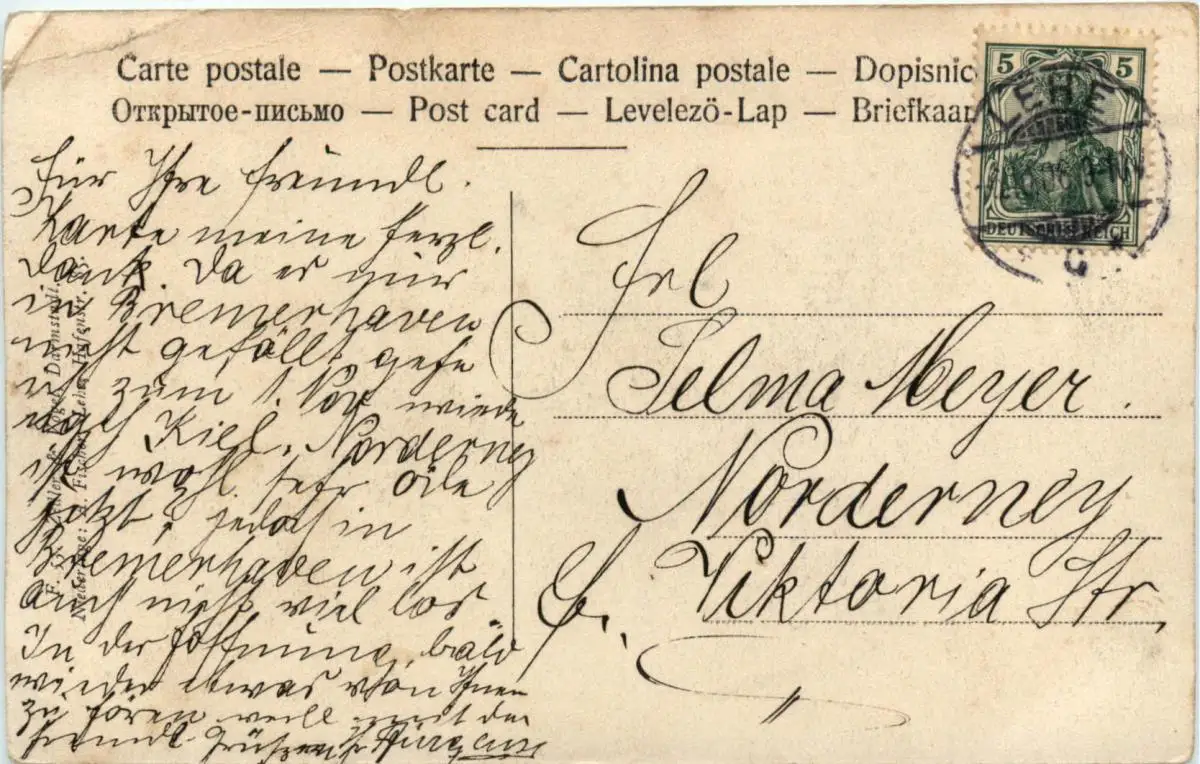 Carte postale — Postkarte — Cartolina postale — Dopisnic
Открытое-письмо — Post card — Levelezö-Lap — Briefkaar
5 5
DEUTSCHES REICH
LEHE
Für Ihre freundl.
Karte meine herzl.
Dank. Da es mir
in Bremerhaven
nicht gefällt, gehe
ich zum 1. Nov wieder
nach Kiel. Norderney
ist wohl sehr öde
jetzt, jedoch in
Bremerhaven ist
auch nicht viel los
In der Hoffnung, bald
wieder etwas von Ihnen
zu hören
freundl. Grüßen
Frl
Selma Meyer.
Norderney
Viktoria Str.